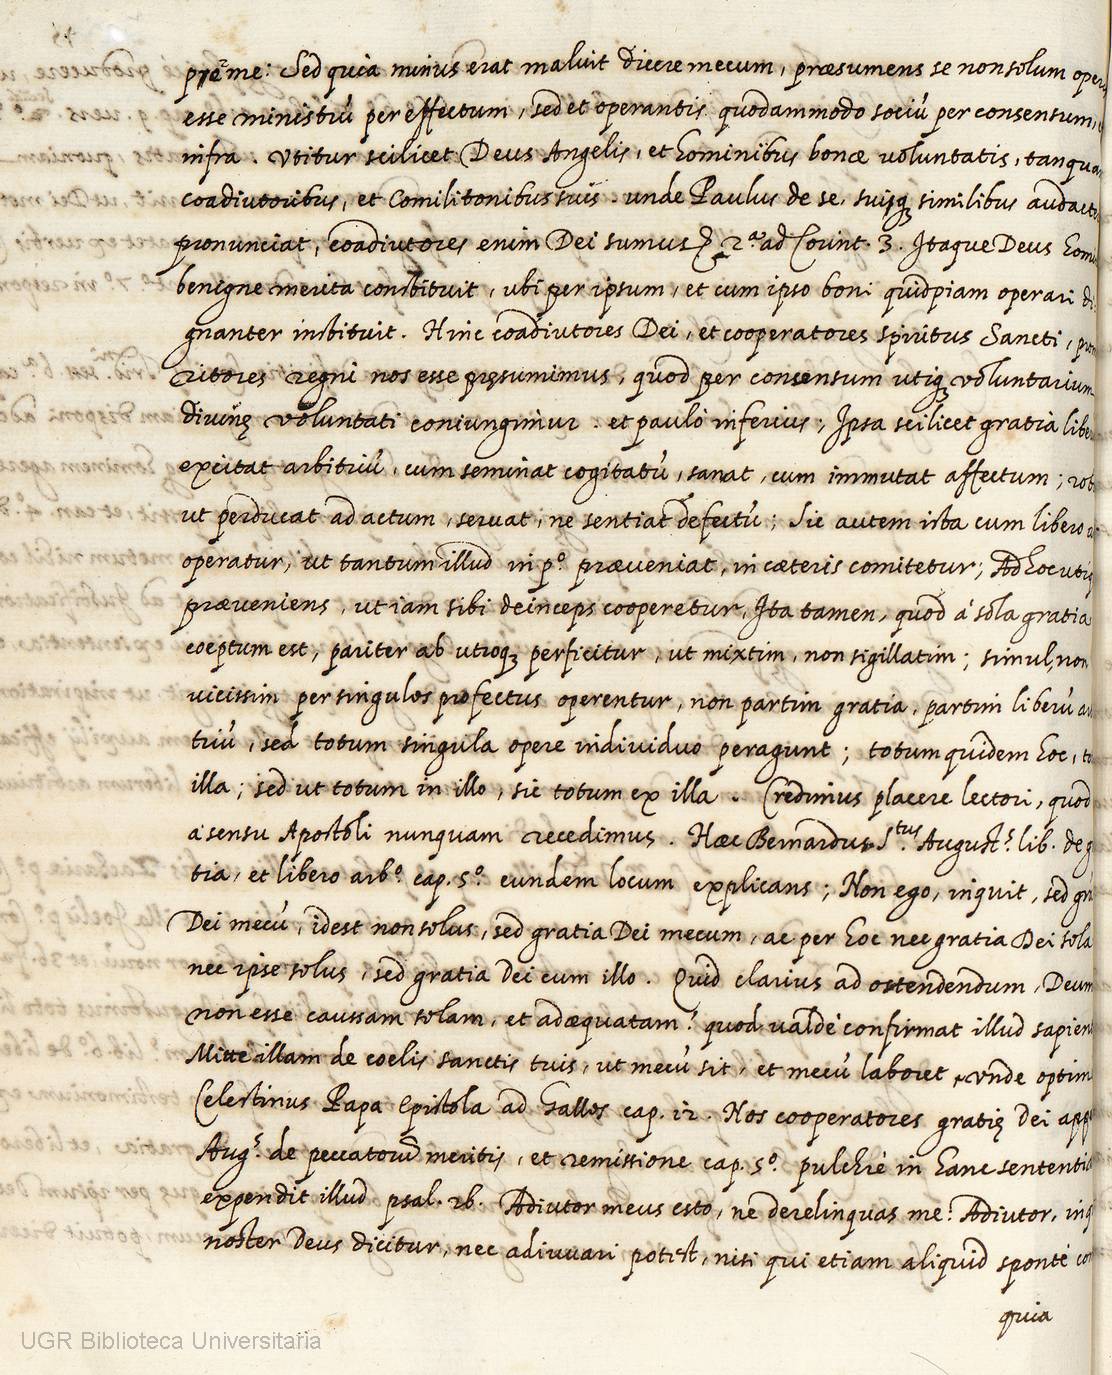 per me: Sed quia minus erat maluit dicere mecum, præsumens se non solum oper
esse ministrũ per effectum, sed et operantis quodammodo sociũ per consensum,
infra. Vtitur scilicet Deus Angelis, et hominibus bonæ voluntatis, tanqua
coadiutoribus, et Comilitonibus suis. unde Paulus de se, suisq; similibus audact
pronunciat, coadiutores enim Dei sumus 2.ª ad Corint. 3. Itaque Deus homi
benigne merita constituit, ubi per ipsum, et cum ipso boni quidpiam operari di
gnanter instituit. Hinc coadiutores Dei, et cooperatores spiritus Sancti, prom
eritores regni nos esse pręsumimus, quod per consensum utiq; voluntarium
diuinę voluntati coniungimur. et paulò inferius; Ipsa scilicet gratia libe
excitat arbitriũ, cum seminat cogitatũ, sanat, cum immutat affectum; rob
ut perducat ad actum, seruat, ne sentiat defectũ; Sic autem ista cum libero a
operatur, ut tantum illud in p.º præveniat, in cæteris comitetur; Ad hoc utiq
præveniens, ut iam sibi deinceps cooperetur, Ita tamen, quod à sola gratia
coeptum est, pariter ab utroq; perficitur, ut mixtim, non sigillatim; simul, non
vicissim per singulos profectus operentur, non partim gratia, partim liberũ ar
triũ, sed totum singula opere individuo peragunt; totum quidem hoc, to
illa; sed ut totum in illo, sic totum ex illa. Credimus placere lectori, quod
a sensu Apostoli nunquam recedimus. Hæc Bernardus. S.tus August.s lib. de g
tia, et libero arb.º cap. 5.º eundem locum explicans; Non ego, inquit, sed gra
Dei mecũ, idest non solus, sed gratia Dei mecum, ac per hoc nec gratia Dei sola
nec ipse solus, sed gratia Dei cum illo. Quid clarius ad ostendendum, Deum
non esse caussam solam, et adæquatam? quod valdè confirmat illud sapien
Mitte illam de coelis sanctis tuis, ut mecũ sit, et mecũ laboret, vnde optim
Celestinus Papa Epistola ad Gallos cap. 12. Nos cooperatores gratię Dei app
Aug.s de peccatorũ meritis, et remissione cap. 5.º pulchrè in hanc sententia
expendit illud psal. 26. Adiutor meus esto, ne derelinquas me: Adiutor, inq
noster Deus dicitur, nec adiuuari potest, nisi qui etiam aliquid spontè con
quia
UGR Biblioteca Universitaria